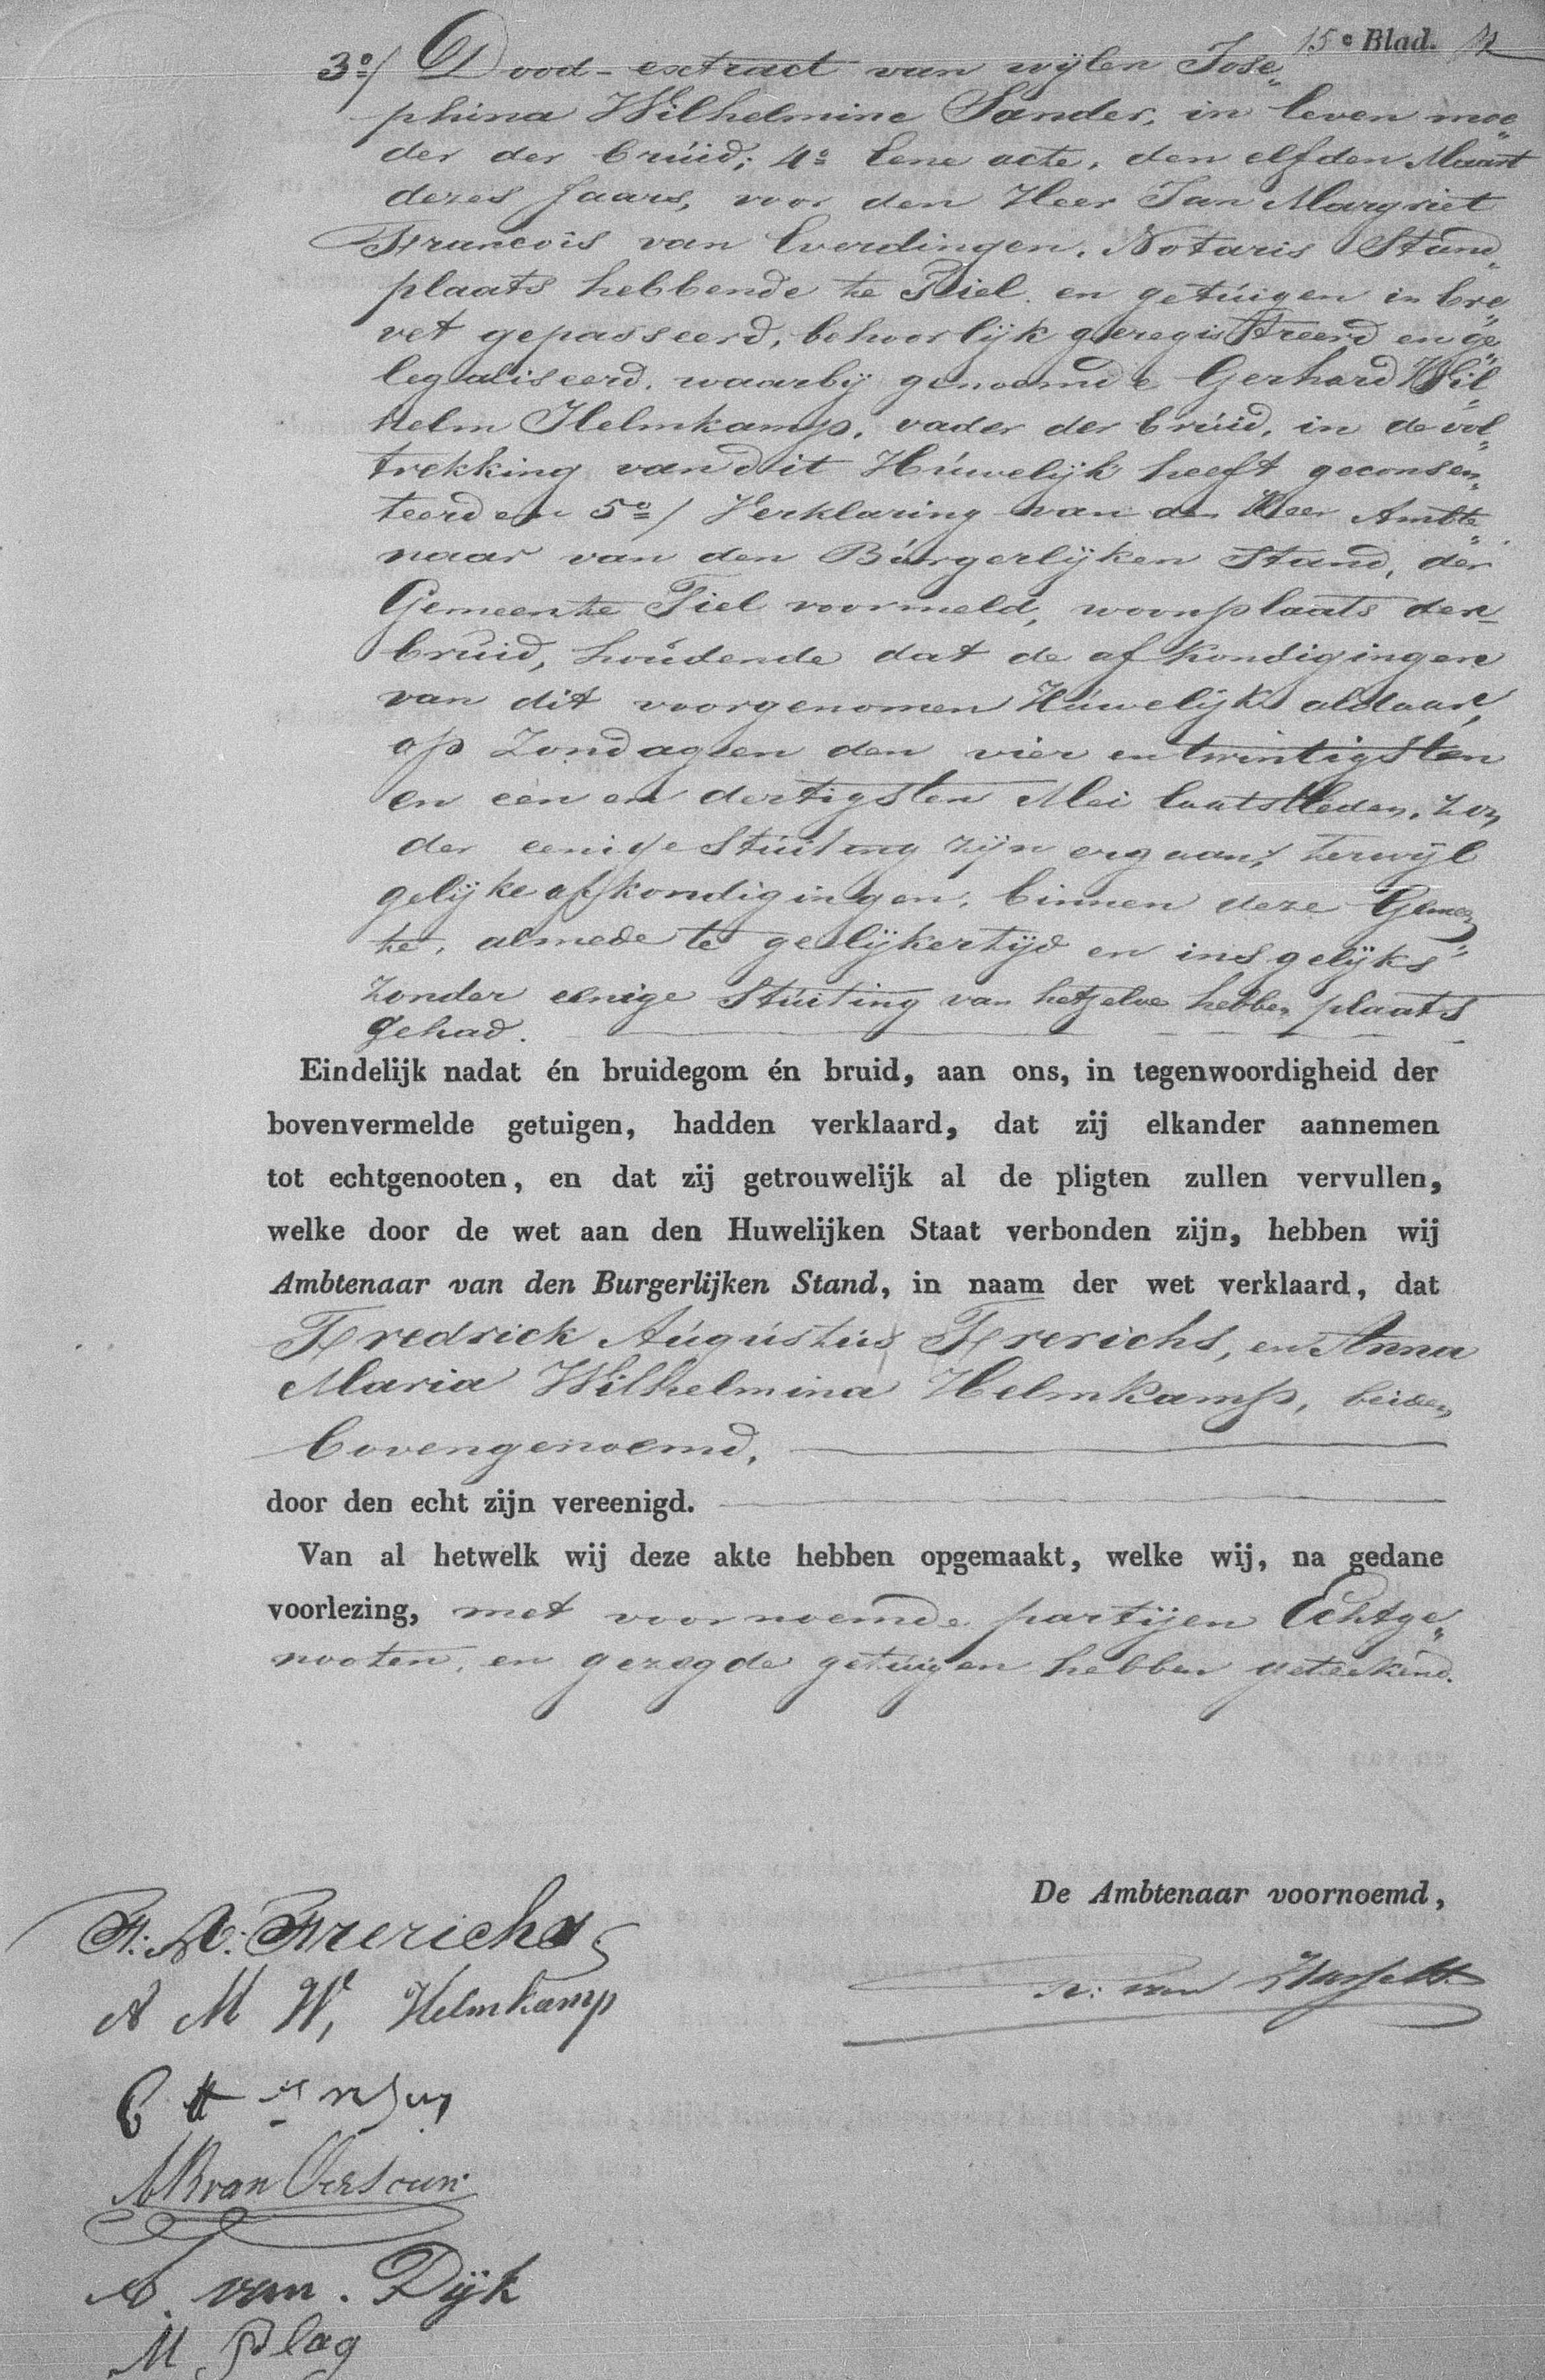 15e Blad.
3o/ Dood-extract van wijlen Jose„
phina Wilhelmine Sander, in leven moe„
der der bruid; 4o Eene acte, den elfden Maart
dezes Jaars, voor den Heer Jan Margriet
Francois van Everdingen, Notaris Stand„
plaats hebbende te Tiel en getuigen in bre„
vet gepasseerd, behoorlijk geregistreerd en ge„
legaliseerd, waarbij genoemde Gerhard Wil„
helm Helmkamp, vader der bruid, in de vol„
trekking van dit Huwelijk heeft geconsen„
teerd en 5o/ Verklaring van den Heer Ambte„
naar van den Burgerlijken Stand, der
Gemeente Tiel voormeld, woonplaats der
bruid, houdende dat de afkondigingen
van dit voorgenomen Huwelijk aldaar,
op Zondagen den vier en twintigsten
en een en dertigsten Mei laatstleden, zon„
der eenige Stuiting zijn ergaan, terwijl
gelijke afkondigingen, binnen deze Gemeen„
te, almede te gelijkertijd en insgelijks
zonder eenige Stuiting van hetzelve hebben plaats
gehad.
Eindelijk nadat én bruidegom én bruid, aan ons, in tegenwoordigheid der
bovenvermelde getuigen, hadden verklaard, dat zij elkander aannemen
tot echtgenooten, en dat zij getrouwelijk al de pligten zullen vervullen,
welke door de wet aan den Huwelijken Staat verbonden zijn, hebben wij
Ambtenaar van den Burgerlijken Stand, in naam der wet verklaard, dat
Fredrick Augustus Frerichs, en Anna
Maria Wilhelmina Helmkamp, beiden
bovengenoemd,
door den echt zijn vereenigd.
Van al hetwelk wij deze akte hebben opgemaakt, welke wij, na gedane
voorlezing, met voornoemde partijen Echtge„
nooten, en gezegde getuigen hebben geteekend.
De Ambtenaar voornoemd,
F: A: Frerichs
van Hasselt
A M W, Helmkamp
van
A van Dijk
M Plag